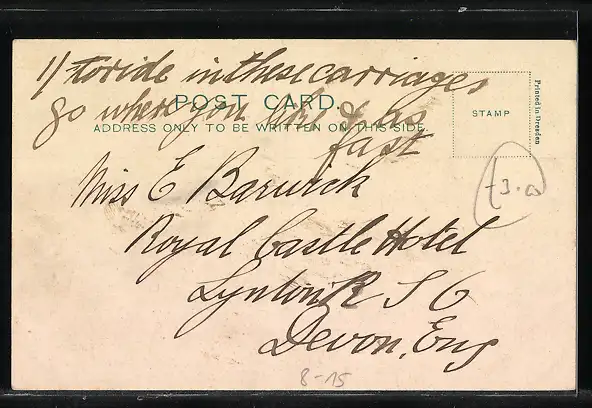 1/ to ride in these carriages
go where you like & as
fast
POST CARD.
ADDRESS ONLY TO BE WRITTEN ON THIS SIDE.
STAMP
Printed in Dresden
Miss E Barwick
Royal Castle Hotel
Lynton R S O
Devon, Eng
8-15